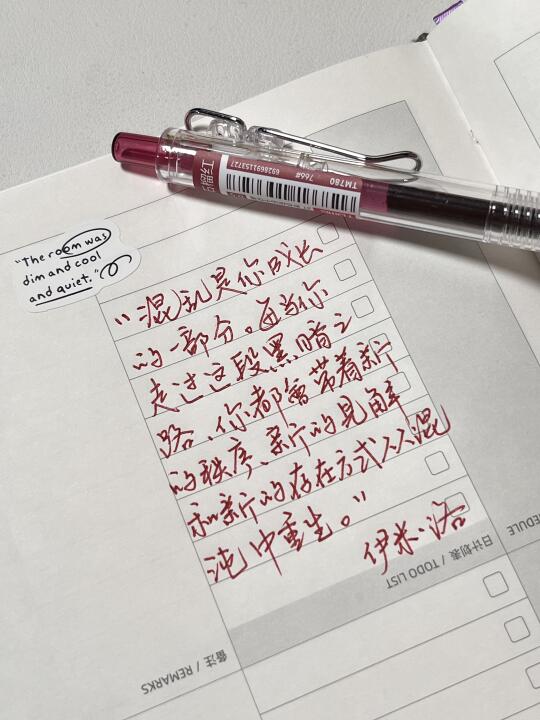 石榴红
6928691153727
766#
TM780
"The room was
dim and cool
and quiet."
"混乱是你成长
的一部分。每当你
走过这段黑暗之
路、你都会带着新
的秩序、新的见解
和新的存在方式从混
沌中重生。"
伊米·洛
日计划表 / TODO LIST
备注 / REMARKS
EDULE